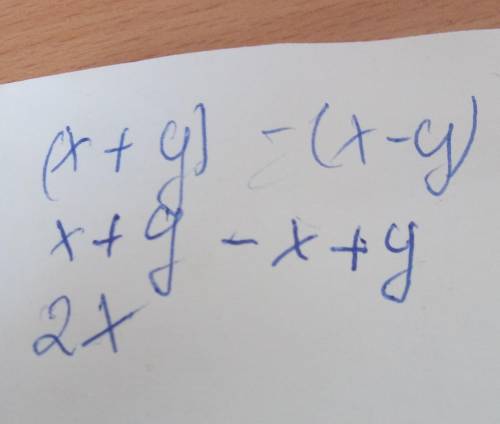 (x + y) - (x - y)
x + y - x + y
2x